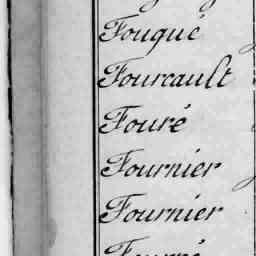 Fouqué
Fourcault
Fouré
Fournier
Fournier